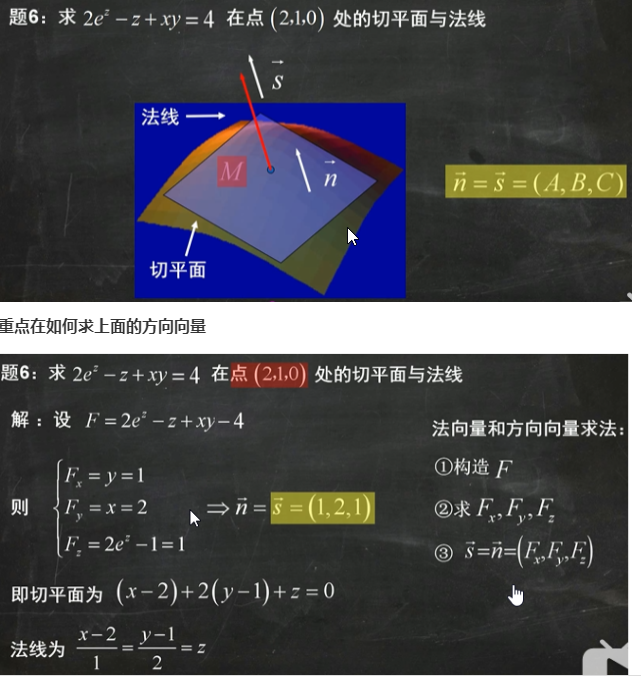 题6：求 2e^z − z + xy = 4 在点 (2,1,0) 处的切平面与法线
s⃗
法线
M
n⃗
n⃗ = s⃗ = (A, B, C)
切平面
重点在如何求上面的方向向量
题6：求 2e^z − z + xy = 4 在点 (2,1,0) 处的切平面与法线
解：设 F = 2e^z − z + xy − 4
则 { F_x = y = 1
F_y = x = 2
F_z = 2e^z − 1 = 1
⇒ n⃗ = s⃗ = (1, 2, 1)
即切平面为 (x−2)+2(y−1)+z=0
法线为 (x−2)/1 = (y−1)/2 = z
法向量和方向向量求法：
①构造 F
②求 F_x, F_y, F_z
③ s⃗=n⃗=(F_x, F_y, F_z)